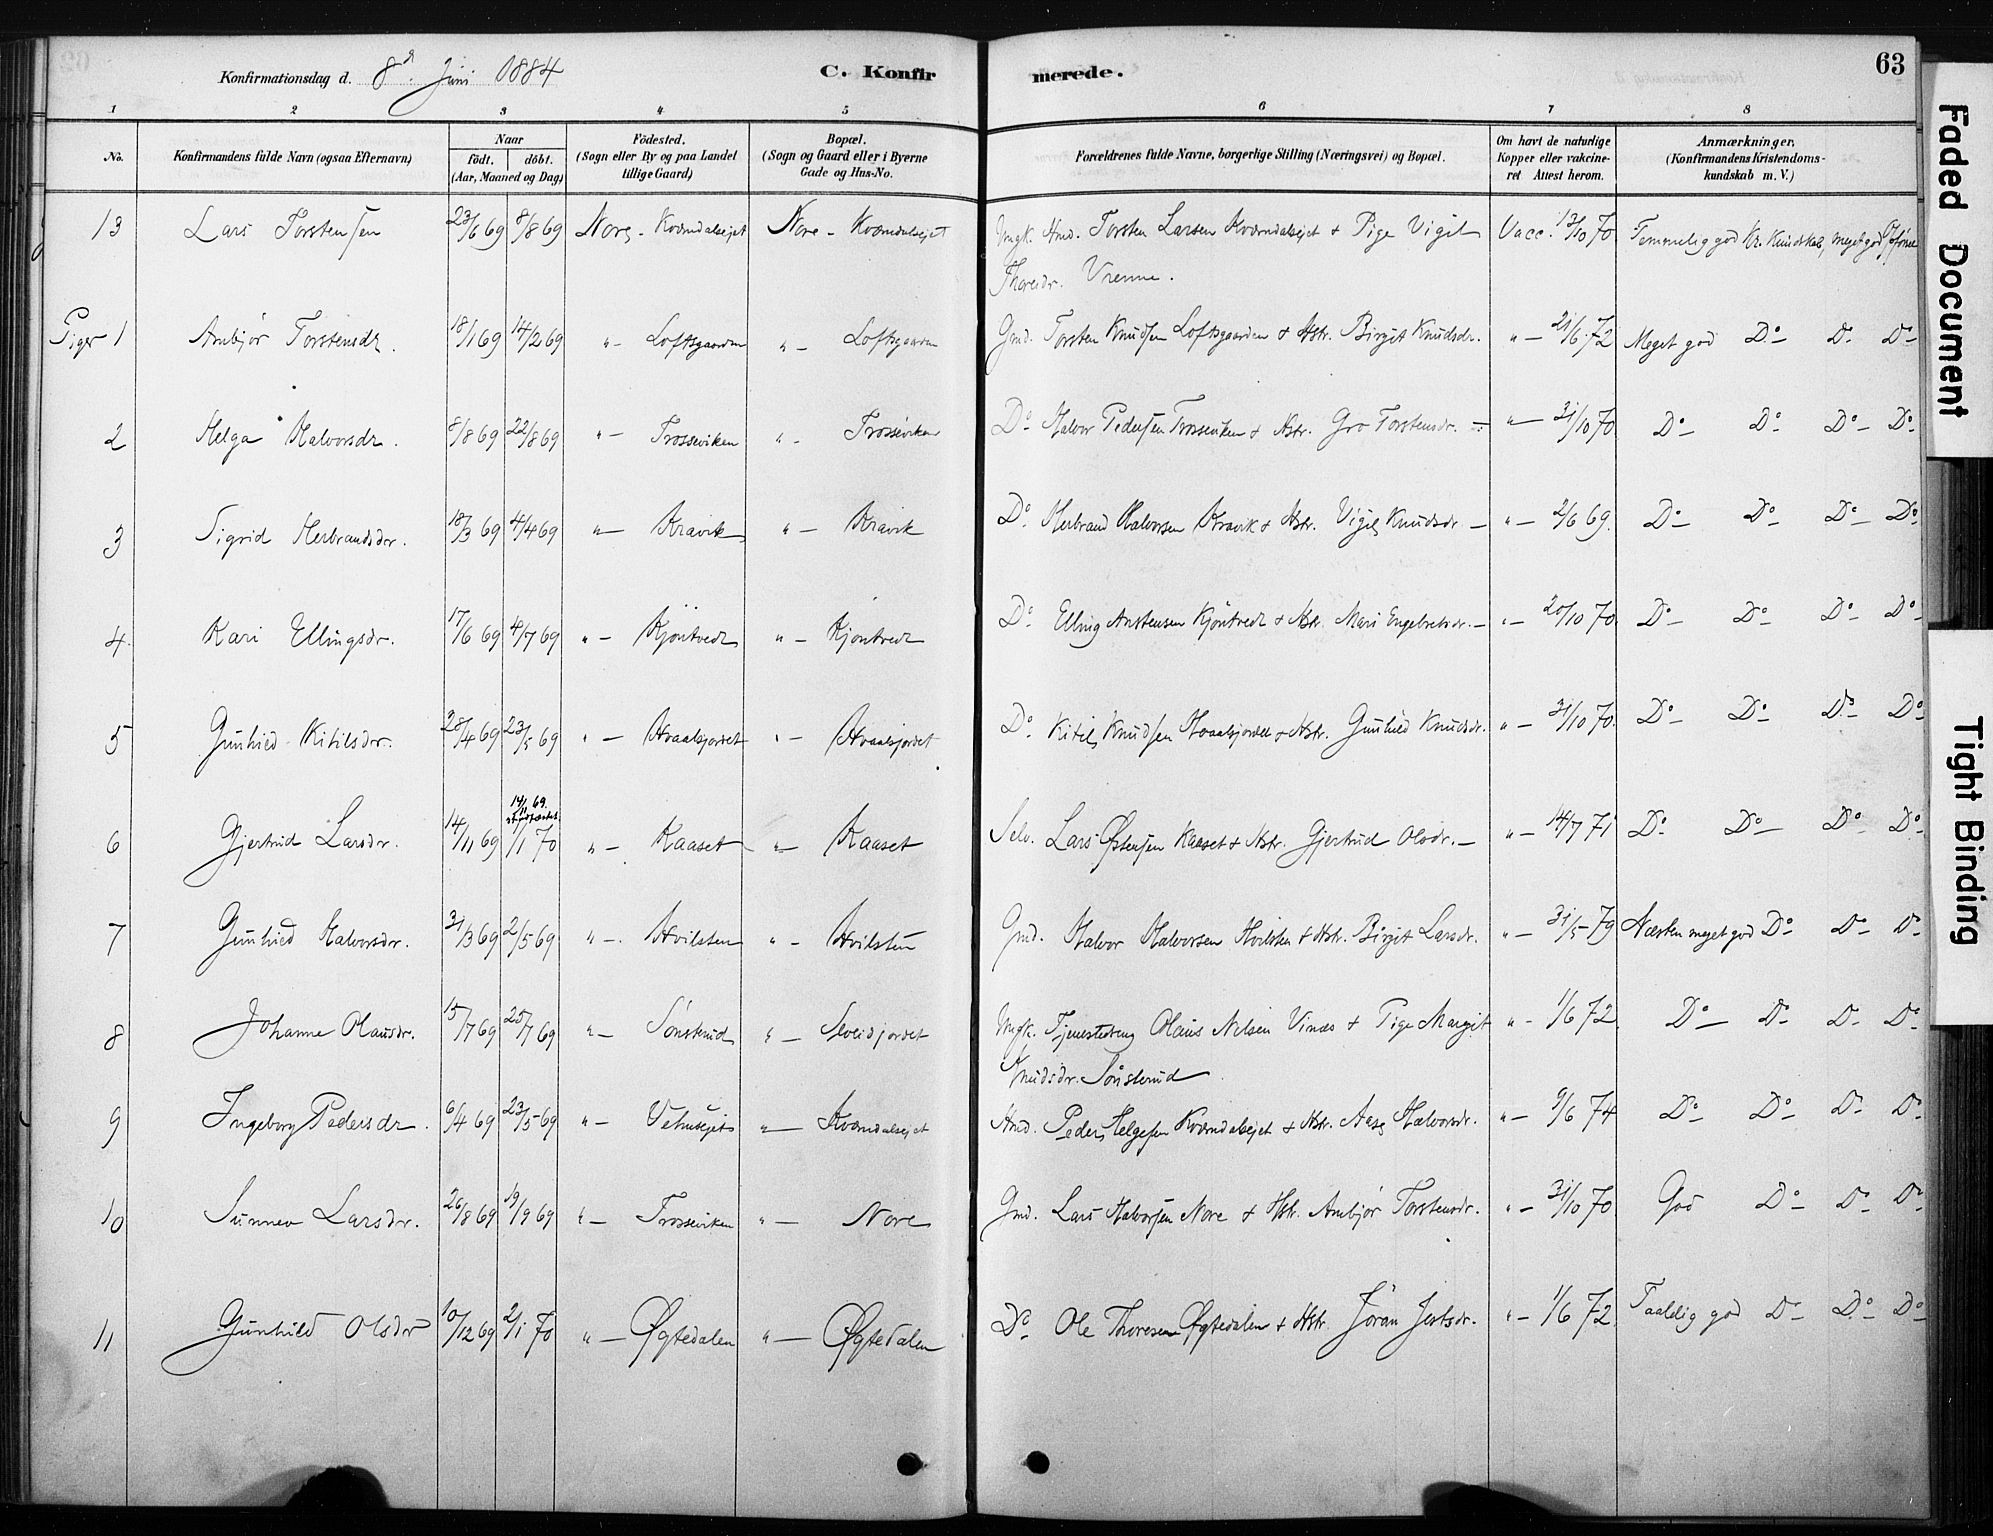 Konfirmationsdag d. 8de Juni 1884 C. Konfir merede. 63
1 2 3 4 5 6 7 8
No. Konfirmandens fulde Navn (ogsaa Efternavn) Naar födt. döbt. (Aar, Maaned og Dag) Födested. (Sogn eller By og paa Landet tillige Gaard) Bopæl. (Sogn og Gaard eller i Byerne Gade og Hus-No. Forældrenes fulde Navne, borgerlige Stilling (Næringsvei) og Bopæl. Om havt de naturlige Kopper eller vakcineret Attest herom. Anmærkninger, (Konfirmandens Kristendomskundskab m. V.)
13 Lars Torstensen 23/6 69 8/8 69 Nore - Kværndalsejet Nore - Kværndalsejet Ungk. Hmd. Torsten Larsen Kværndalsejet & Pige Vigil Vacc. 13/10 70 Temmelig god Kr. Kundskab, meget god Opførsel
Thoresdr. Vrenne.
Piger 1 Ambjør Torstensdr. 18/1 69 14/2 69 " - Loftsgaarden " - Loftsgaarden Gmd. Torsten Knudsen Loftsgaarden & Hstr. Birgit Knudsdr. " - 21/6 72 Meget god Do - Do - Do -
2 Helga Halvorsdr. 8/8 69 22/8 69 " - Trosseviken " - Trosseviken Do Halvor Pedersen Trosseviken & Hstr. Gro Torstensdr. - " - 31/10 70 Do - Do - Do - Do -
3 Sigrid Herbrandsdr. 18/3 69 4/4 69 " - Kravik " - Kravik Do Herbrand Halvorsen Kravik & Hstr. Vigil Knudsdr - " - 2/6 69. Do - Do - Do - Do
4. Kari Ellingsdr. 17/6 69 4/7 69 " - Kjöntvedt " - Kjöntvedt Do Elling Anstensen Kjöntvedt & Hstr. Mari Engebretsdr. - " - 20/10 70. Do - Do - Do - Do -
5 Gunhild Kitilsdr. 28/4 69 23/5 69 " - Hvaalsjordet " - Hvaalsjordet Do Kitil Knudsen Hvaalsjordet & Hstr. Gunhild Knudsdr. " - 31/10 70. Do - Do - Do - Do
14/11 69.
6 Gjertrud Larsdr. 14/11 69 /1 70 " - Kaaset " - Kaaset Selv. Lars Østensen Kaaset & Hstr. Gjertrud Olsdr. - " - 14/7 71 Do - Do - Do - Do -
7 Gunhild Halvorsdr. 31/3 69 2/5 69 " - Hvilsten " - Hvilsten Gmd. Halvor Halvorsen Hvilsten & Hstr. Birgit Larsdr. " - 31/5 79 Næsten meget god Do - Do - Do -
8 Johanne Olausdr. 15/7 69 25/7 69 " - Sönsterud " - Sevleidjordet Ungk. Tjenestedreng Olaus Nilsen Vinæs & Pige Margit " - 1/6 72. Do - Do - Do - Do -
Knudsdr. Sönsterud
9 Ingeborg Pedersdr. 6/4 69 23/5 69 " - Vehusejet " - Kværndalsejet Hmd. Peder Helgesen Kværndalsejet & Hstr. Aase Halvorsdr. " - 9/6 74 Do - Do - Do - Do -
10 Sunnev Larsdr. 26/8 69 19/9 69 " - Trosseviken " - Nore Gmd. Lars Halvorsen Nore & Hstr. Ambjør Torstensdr. " - 31/10 70 God Do - Do - Do -
11 Gunhild Olsdr 10/12 69 2/1 70 " - Øgtedalen " - Øgtedalen Do Ole Thoresen Øgtedalen & Hstr. Jöran Jertsdr. " - 1/6 72. Taalelig god Do - Do - Do -
Faded Document
Tight Binding